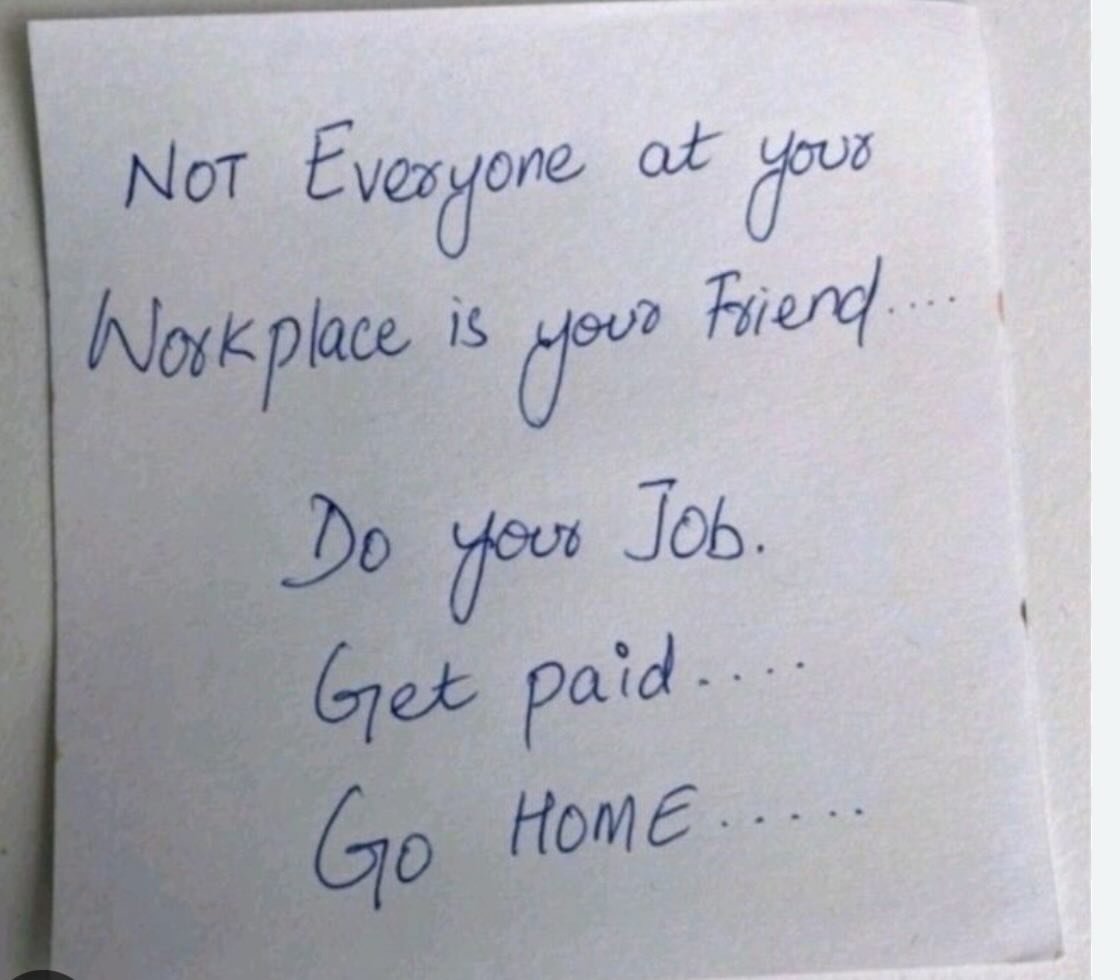 NOT Everyone at your
Workplace is your Friend....
Do your Job.
Get paid....
Go HOME......